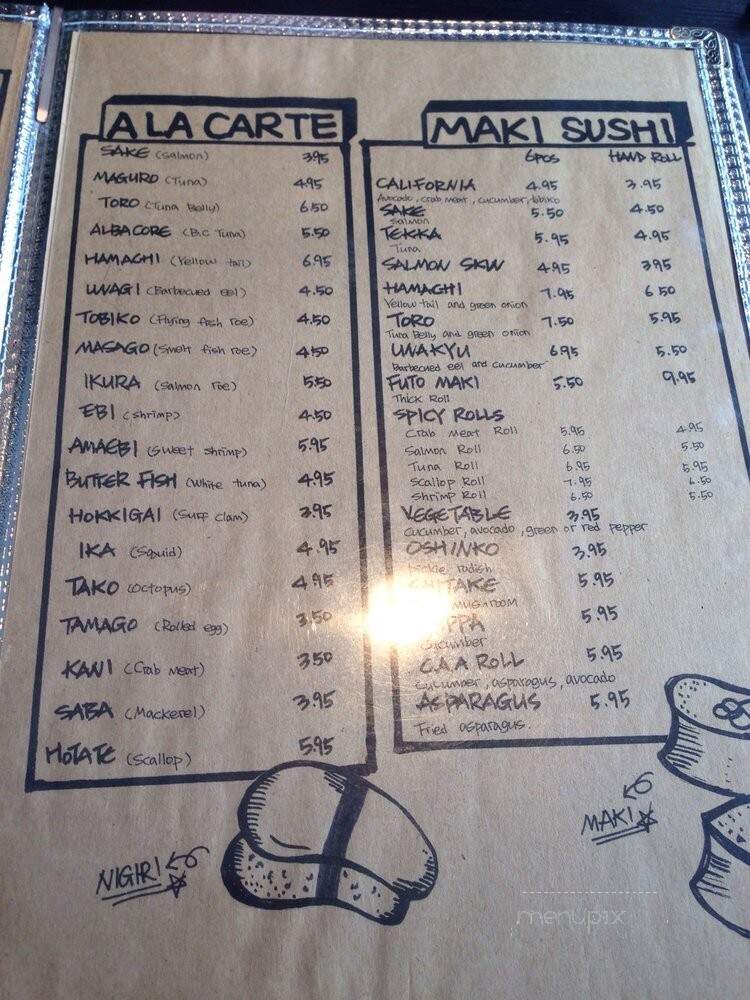 A LA CARTE
SAKE (Salmon) 3.95
MAGURO (Tuna) 4.95
TORO (Tuna Belly) 6.50
ALBACORE (B.C Tuna) 5.50
HAMACHI (Yellow tail) 6.95
UNAGI (Barbecued eel) 4.50
TOBIKO (Flying fish roe) 4.50
MASAGO (Smelt fish roe) 4.50
IKURA (Salmon roe) 5.50
EBI (shrimp) 4.50
AMAEBI (Sweet shrimp) 5.95
BUTTER FISH (White tuna) 4.95
HOKKIGAI (Surf clam) 3.95
IKA (Squid) 4.95
TAKO (Octopus) 4.95
TAMAGO (Rolled egg) 3.50
KANI (Crab meat) 3.50
SABA (Mackerel) 3.95
HOTATE (Scallop) 5.95
NIGIRI
MAKI SUSHI
6PCS HAND ROLL
CALIFORNIA 4.95 3.95
Avocado, crab meat, cucumber, tobiko
SAKE 5.50 4.50
Salmon
TEKKA 5.95 4.95
Tuna
SALMON SKIN 4.95 3.95
HAMACHI 7.95 6.50
Yellow tail and green onion
TORO 7.50 5.95
Tuna Belly and green onion
UNAKYU 6.95 5.50
Barbecued eel and cucumber
FUTO MAKI 5.50 9.95
Thick Roll
SPICY ROLLS
Crab meat Roll 5.95 4.95
Salmon Roll 6.50 5.50
Tuna Roll 6.95 5.95
Scallop Roll 7.95 6.50
Shrimp Roll 6.50 5.50
VEGETABLE 3.95
Cucumber, avocado, green or red pepper
OSHINKO 3.95
radish
5.95
MUSHROOM
5.95
Cucumber
C.A.A ROLL 5.95
Cucumber, asparagus, avocado
ASPARAGUS 5.95
Fried asparagus.
MAKI
menupix